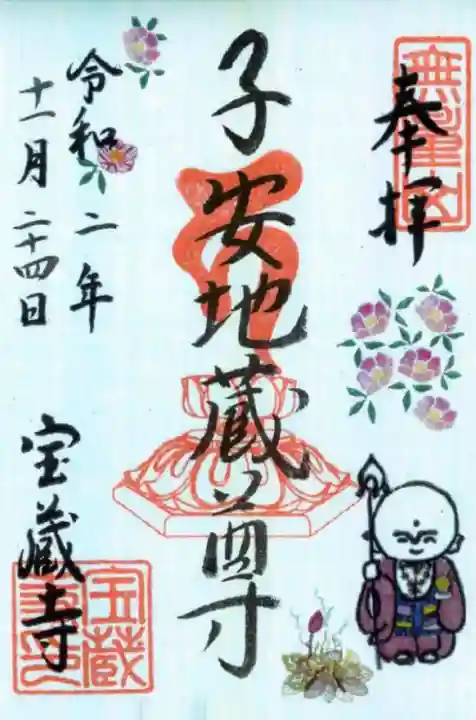 奉拝
子安地蔵尊
令和二年
十一月二十四日
宝蔵寺